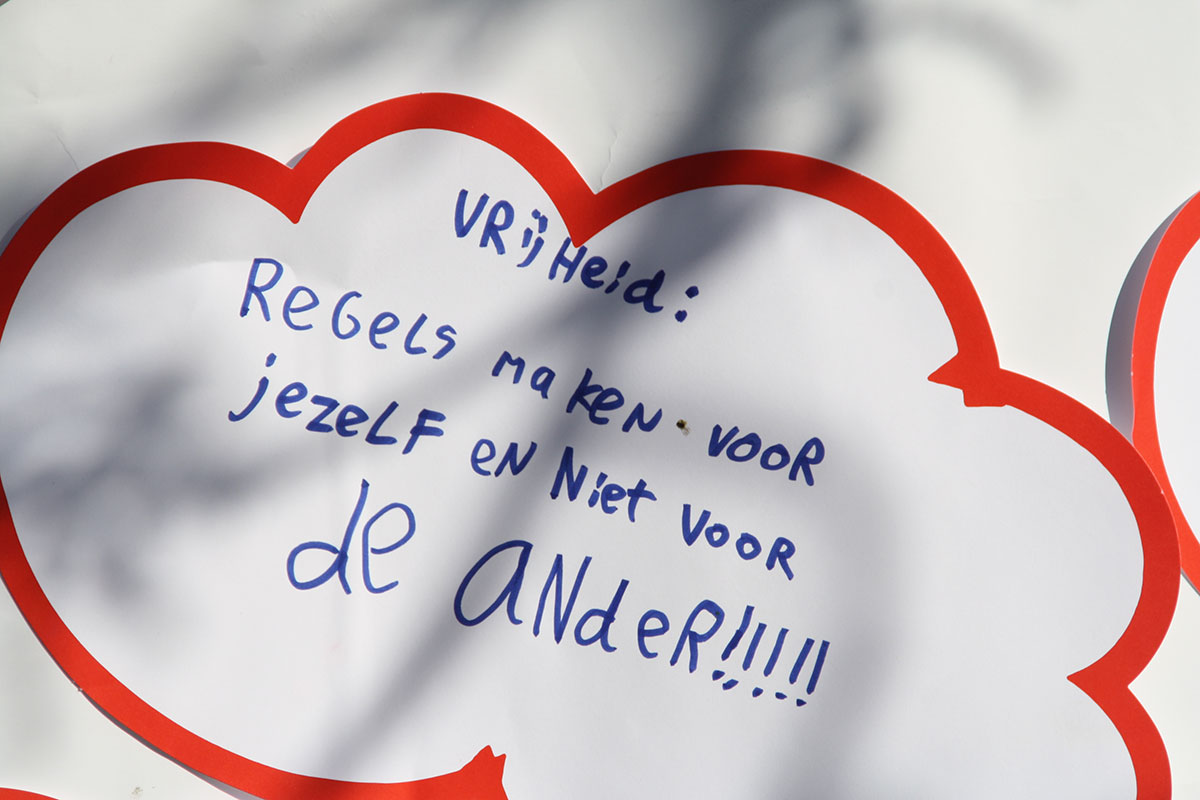 VRijHeid:
ReGeLs maKeN VOOR
jezeLF eN Niet VOOR
de aNdeR!!!!!